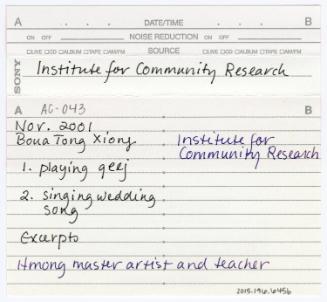 A DATE/TIME B
ON OFF NOISE REDUCTION ON OFF
□LIVE □CD □ALBUM □TAPE □AM/FM SOURCE □LIVE □CD □ALBUM □TAPE □AM/FM
SONY
Institute for Community Research
A AC-043 B
Nov. 2001
Boua Tong Xiong
Institute for
Community Research
1. playing qeej
2. singing wedding
song
Excerpts
Hmong master artist and teacher
2015.196.645b